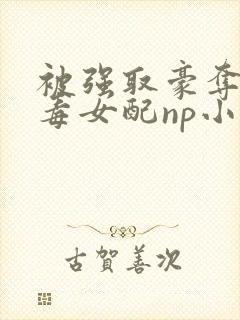 被强取豪夺
毒女配np小
古賀善次